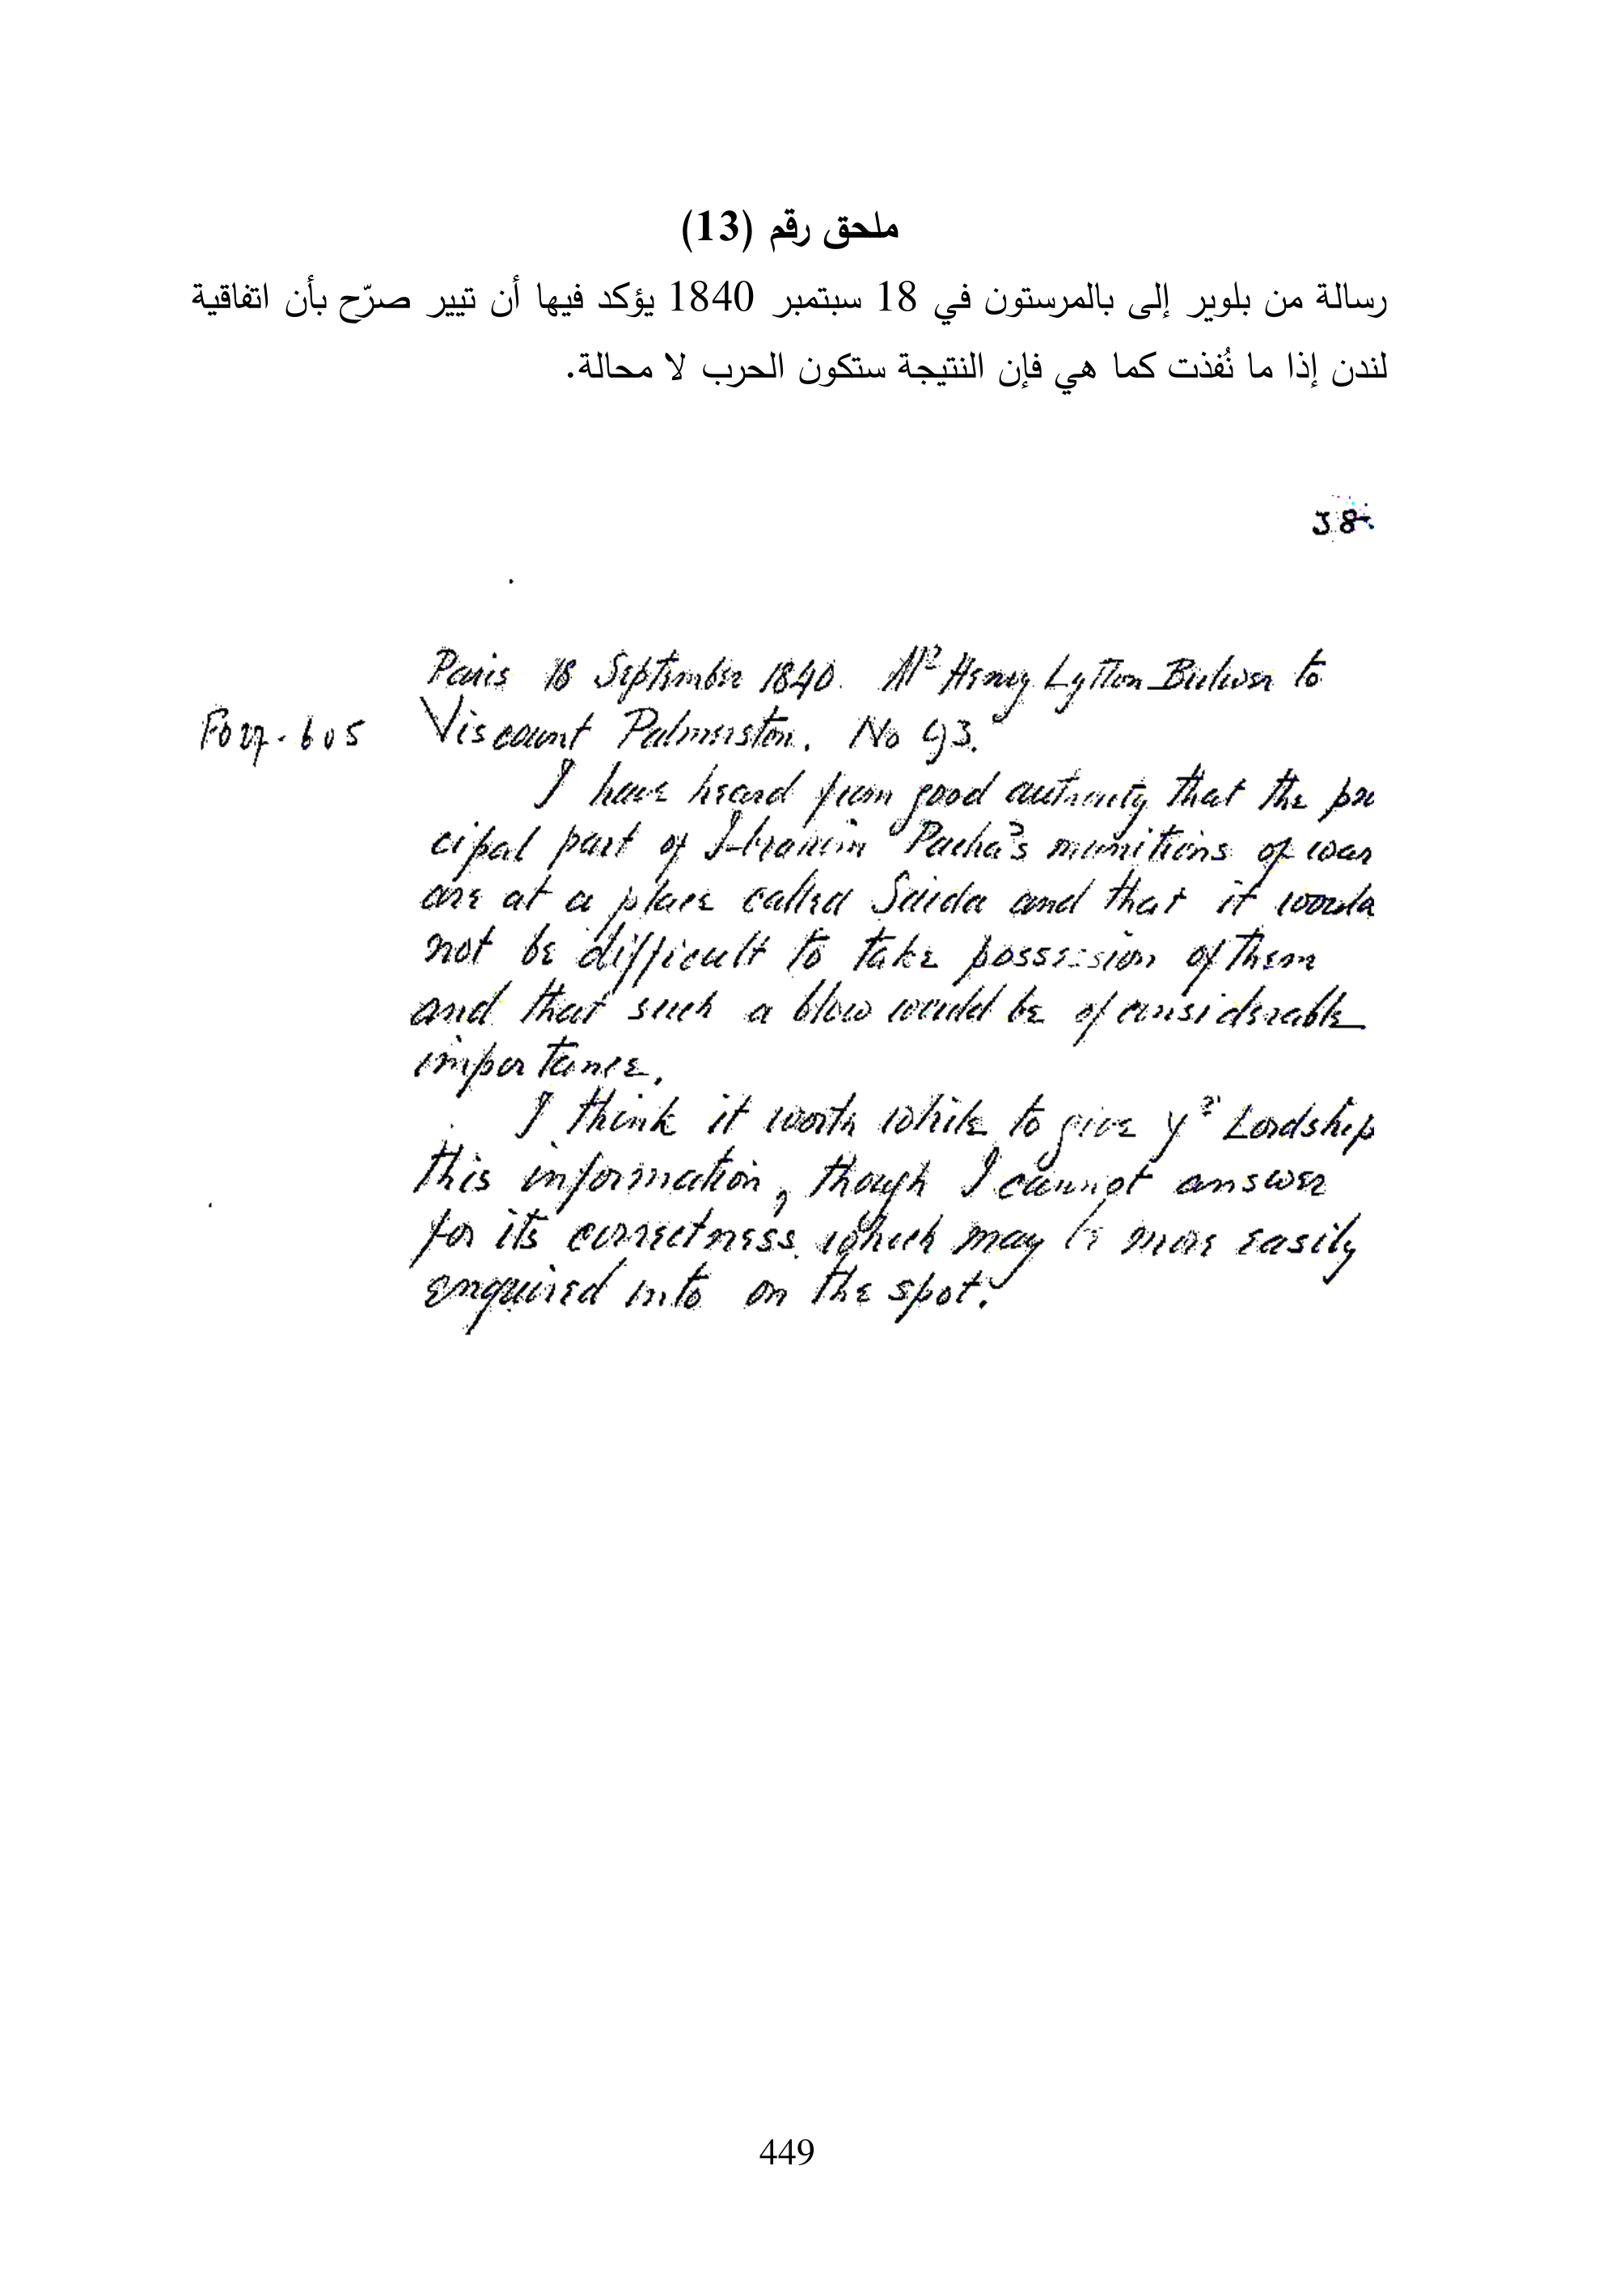 ملحق رقم (13)
رسالة من بلوير إلى بالمرستون في 18 سبتمبر 1840 يؤكد فيها أن تيير صرّح بأن اتفاقية
لندن إذا ما نُفذت كما هي فإن النتيجة ستكون الحرب لا محالة.
Paris 18 September 1840. Mr Henry Lytton Bulwer to
FO 27 - 605 Viscount Palmerston. No 93.
I have heard from good authority that the prin
cipal part of Ibrahim Pacha's munitions of war
are at a place called Saida and that it would
not be difficult to take possession of them
and that such a blow would be of considerable
importance.
I think it worth while to give yr Lordship
this information, though I cannot answer
for its correctness which may be more easily
enquired into on the spot.
449